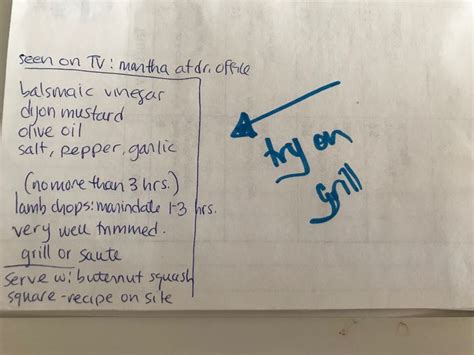 seen on TV: martha at dr. office
balsmaic vinegar
dijon mustard
olive oil
salt, pepper, garlic
(no more than 3 hrs.)
lamb chops: marindate 1-3 hrs.
very well trimmed.
grill or saute
serve w: buternut squash
square - recipe on site
try on
grill